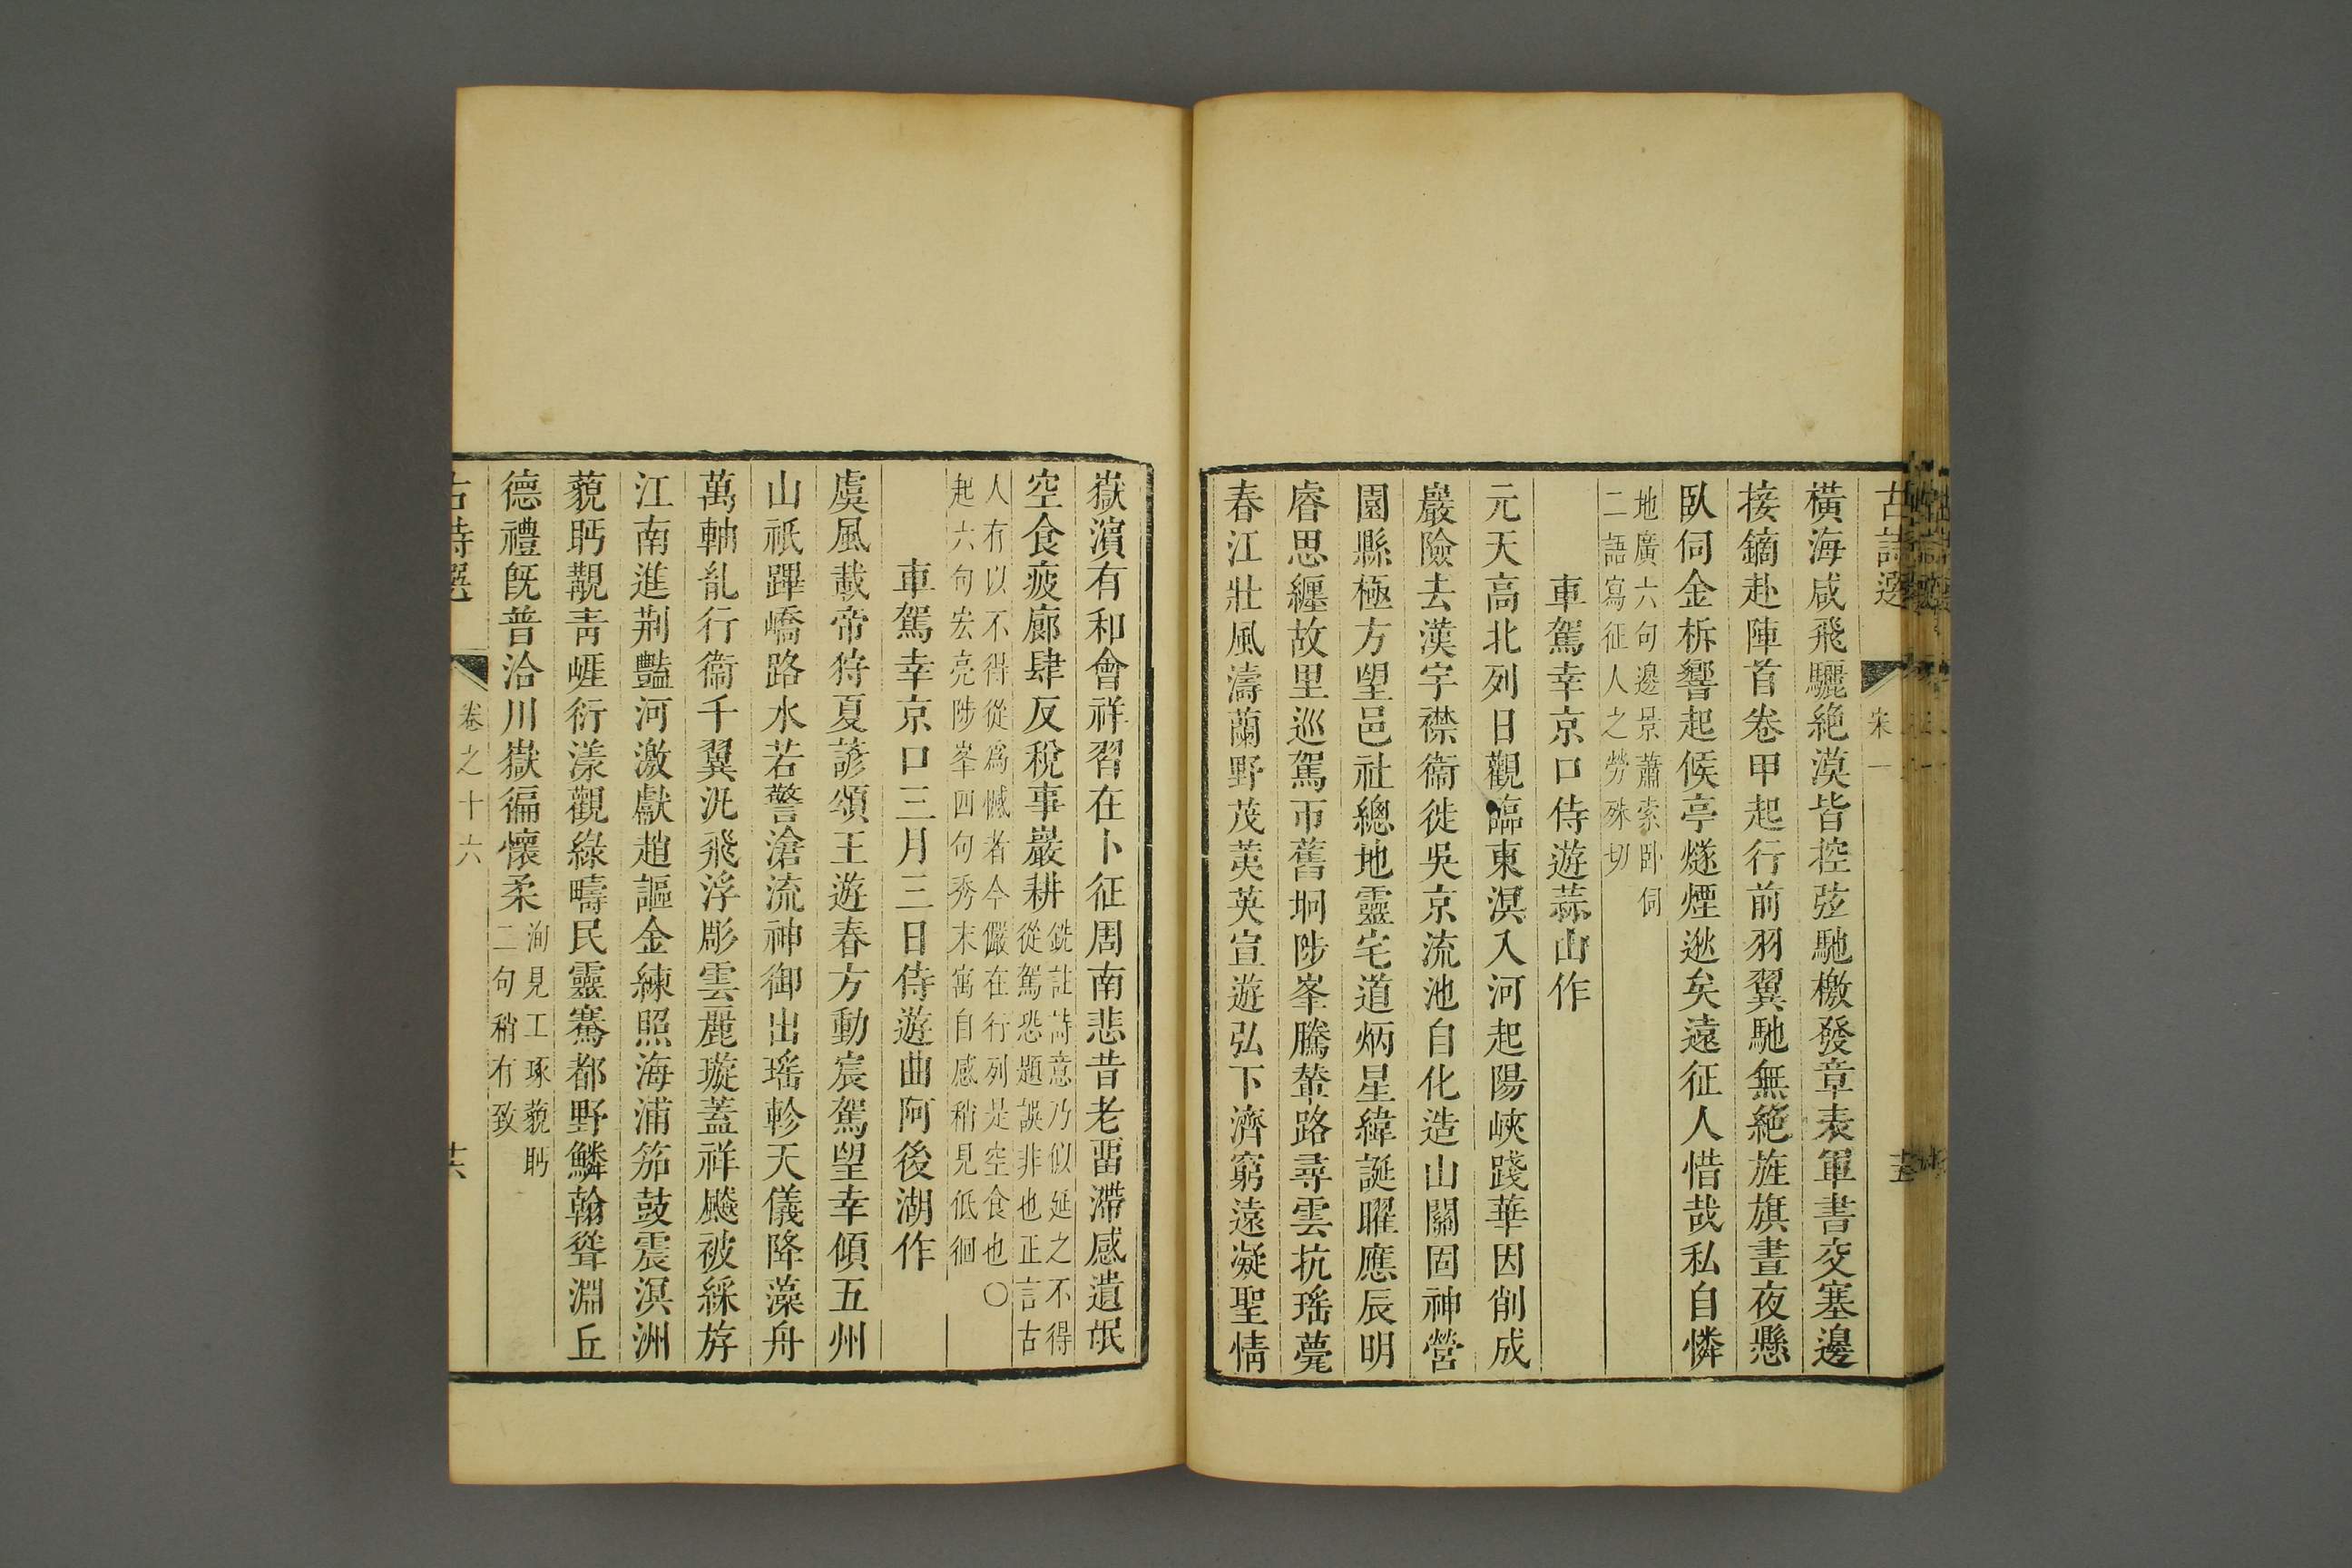 古詩選 宋一 十五
橫海咸飛驪絕漠皆控弦馳檄發章表軍書交塞邊
接鏑赴陣首卷甲起行前羽翼馳無絕旌旗晝夜懸
臥伺金柝響起候亭燧煙逖矣遠征人惜哉私自憐
地廣六句邊景蕭索卧伺
二語寫征人之勞殊切
車駕幸京口侍遊蒜山作
元天高北列日觀臨東溟入河起陽峽踐華因削成
巖險去漢宇襟衞徙吳京流池自化造山關固神營
園縣極方望邑社總地靈宅道炳星緯誕曜應辰明
睿思纏故里巡駕帀舊坰陟峯騰輦路尋雲抗瑤甍
春江壯風濤蘭野茂荑英宣遊弘下濟窮遠凝聖情
嶽濱有和會祥習在卜征周南悲昔老畱滯感遺氓
空食疲廊肆反稅事巖耕
銑註詩意乃似延之不得
從駕恐題誤非也正言古
人有以不得從爲憾者今儼在行列是空食也〇
起六句宏亮陟峯四句秀末寓自感稍見低徊
車駕幸京口三月三日侍遊曲阿後湖作
虞風載帝狩夏諺頌王遊春方動宸駕望幸傾五州
山祇蹕嶠路水若警滄流神御出瑤軫天儀降藻舟
萬軸亂行衞千翼汎飛浮彫雲麗璇蓋祥飈被綵斿
江南進荆豔河激獻趙謳金練照海浦笳鼓震溟洲
藐眄觀青崕衍漾觀綠疇民靈騫都野鱗翰聳淵丘
德禮旣普洽川嶽徧懷柔
洵見工琢藐眄
二句稍有致
古詩選 卷之十六 十六